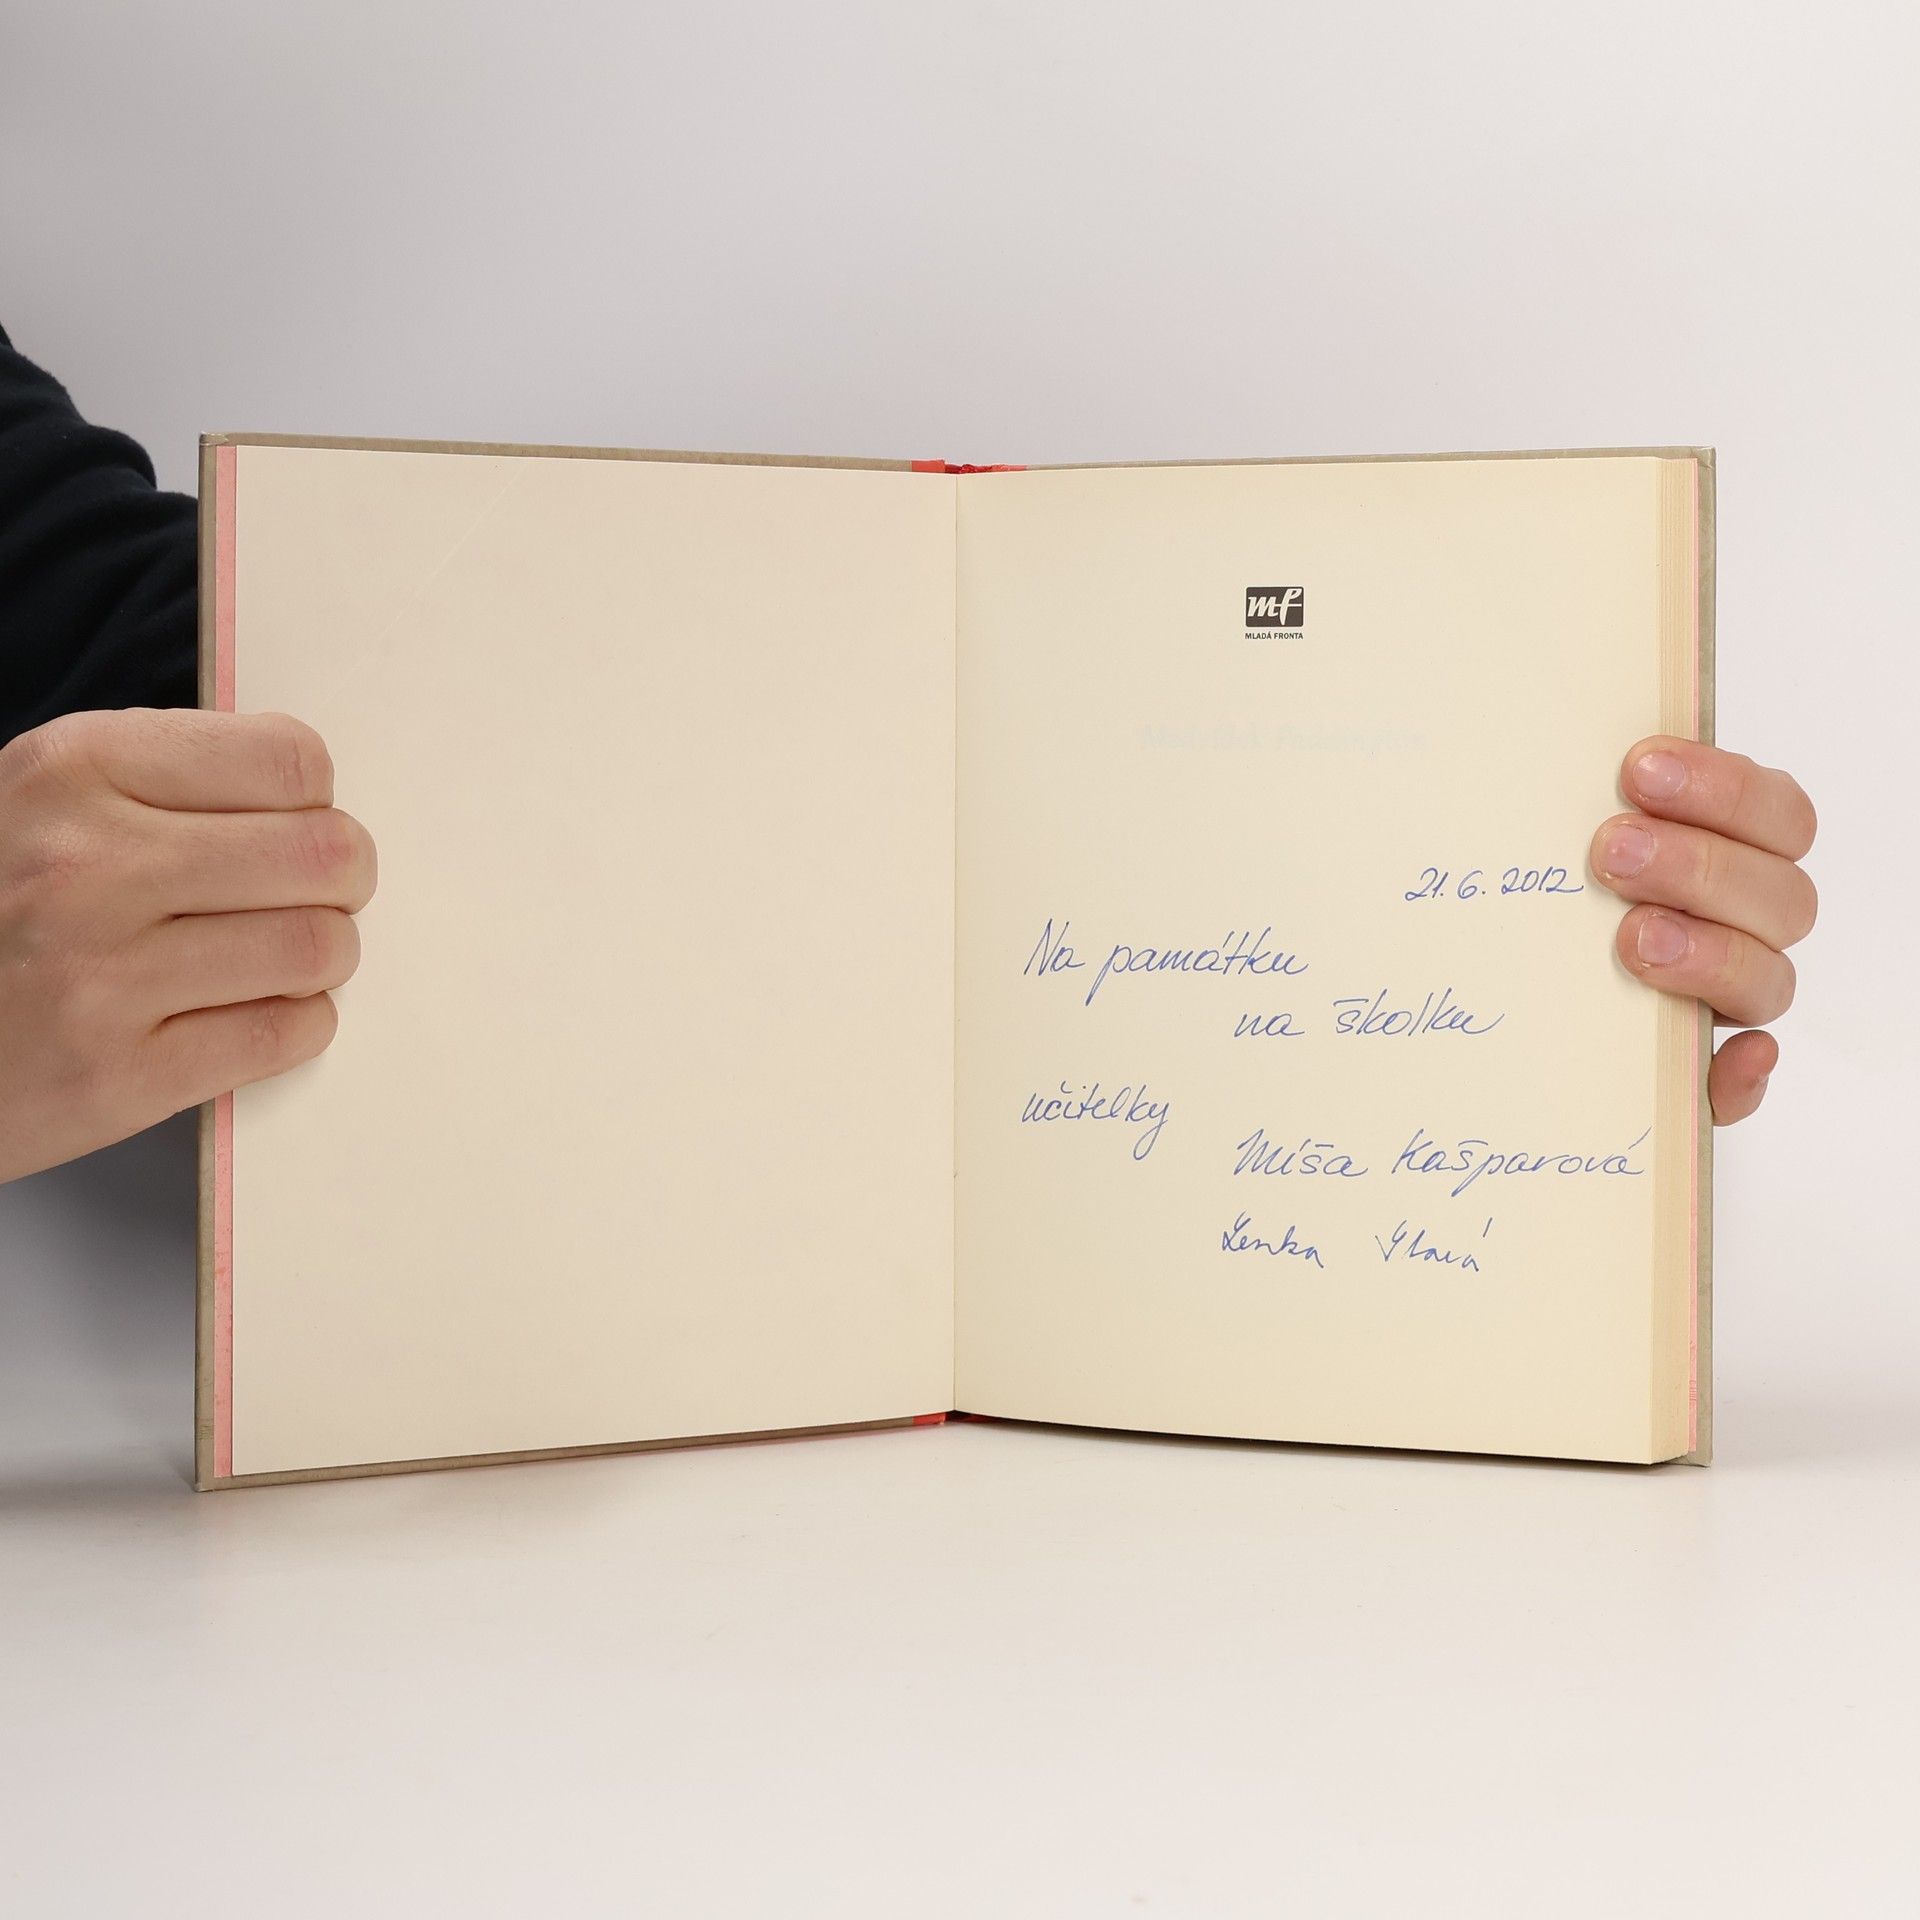 mf
MLADÁ FRONTA
Medvídek Paddington
21. 6. 2012
Na památku
na školku
učitelky
Míša Kašparová
Lenka